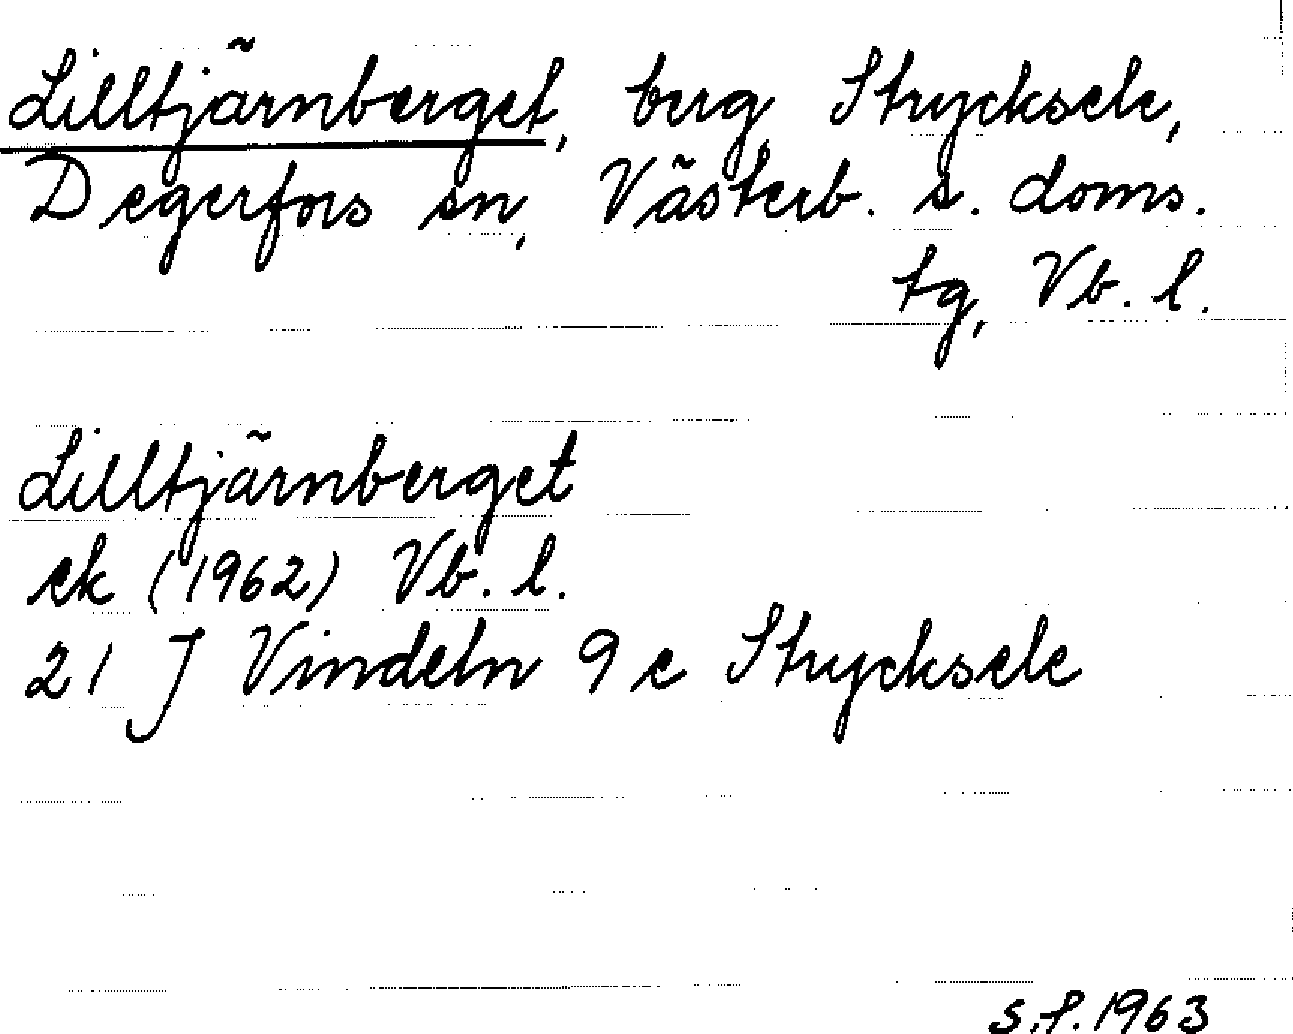 Lilltjärnberget, berg, Strycksele,
Degerfors sn, Västerb. s. doms.
tg, Vb. l.
Lilltjärnberget
ek (1962) Vb. l.
21 J Vindeln 9 c Strycksele
s.f. 1963